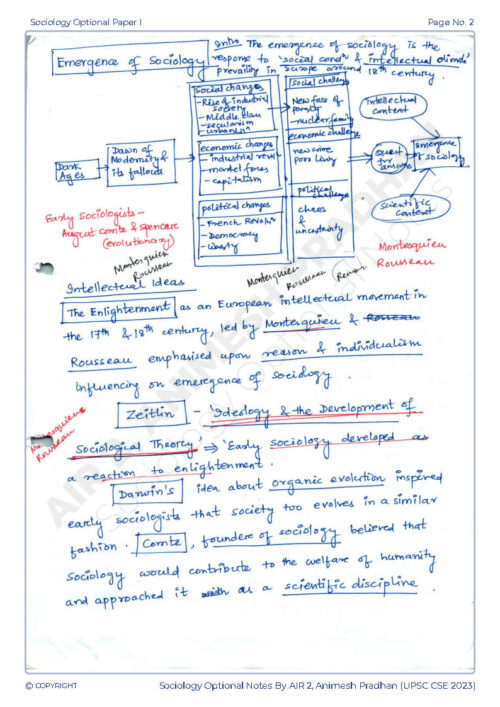 Sociology Optional Paper I
Page No. 2
Emergence of Sociology
Intro The emergence of sociology is the
response to 'social condn & intellectual climate'
prevailing in Europe around 18th century.
Dark Ages
Dawn of Modernity & its fallouts
social changes
- Rise of industrial society
- Middle class
- secularism
- urbanism
economic changes
- industrial revoln
- market forces
- capitalism
political changes
- French Revoln
- Democracy
- liberty
social challenge
New face of poverty
- nuclear family
economic challenge
new crime
poor living
political challenge
chaos & uncertainty
Quest for answers
Intellectual context
Emergence of sociology
Scientific context
Early Sociologists –
August comte & spencer
(evolutionary)
Montesquieu
Rousseau
Montesquieu
Rousseau
Montesquieu
Rousseau
Reason
Intellectual Ideas
The Enlightenment as an European intellectual movement in
the 17th & 18th century, led by Montesquieu & Rosseau
Rousseau emphasised upon reason & individualism
influencing on emergence of sociology.
Montesquieu
Rousseau
Zeitlin - 'Ideology & the Development of
Sociological Theory' ⇒ 'Early sociology developed as
a reaction to enlightenment.
Darwin's idea about organic evolution inspired
early sociologists that society too evolves in a similar
fashion. Comte, founder of sociology believed that
sociology would contribute to the welfare of humanity
and approached it with as a scientific discipline.
AIR 2, ANIMESH PRADHAN
© COPYRIGHT
Sociology Optional Notes By AIR 2, Animesh Pradhan (UPSC CSE 2023)